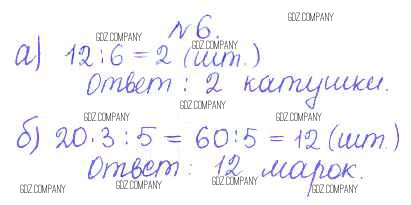 GDZ.COMPANY
№6.
GDZ.COMPANY
GDZ.COMPANY
а) 12:6=2 (шт.)
GDZ.COMPANY
Ответ: 2 катушки.
GDZ.COMPANY
GDZ.COMPANY
б) 20·3:5=60:5=12 (шт.)
GDZ.COMPANY
Ответ: 12 марок.
GDZ.COMPANY
GDZ.COMPANY
GDZ.COMPANY
GDZ.COMPANY